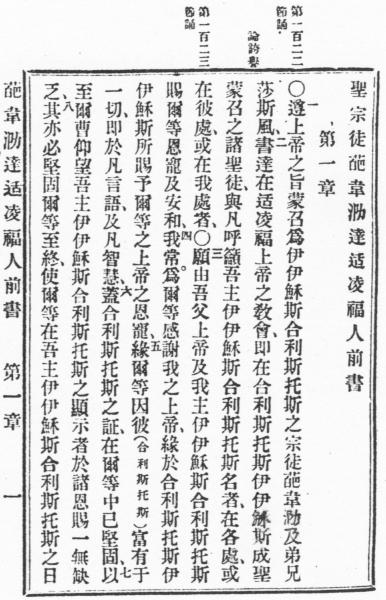 第一百二二
節誦
第一百二三
節誦
聖宗徒葩韋泐達适凌福人前書
第一章
〇一遵上帝之旨蒙召爲伊伊穌斯合利斯托斯之宗徒葩韋泐及弟兄
莎斯風、二書達在适凌福上帝之教會、卽在合利斯托斯伊伊穌斯成聖
蒙召之諸聖徒、與凡呼籲吾主伊伊穌斯合利斯托斯名者、在各處、或
在彼處、或在我處者、〇三願由吾父上帝及我主伊伊穌斯合利斯托斯
賜爾等恩寵及安和、四我常爲爾等感謝我之上帝、緣於合利斯托斯伊
伊穌斯所賜予爾等之上帝之恩寵、五緣爾等因彼(合利斯托斯)富有于
一切、卽於凡言語及凡智慧、六蓋合利斯托斯之証在爾等中已堅固、七以
至爾曹仰望吾主伊伊穌斯合利斯托斯之顯示者於諸恩賜一無缺
乏、八其亦必堅固爾等至終、使爾等在吾主伊伊穌斯合利斯托斯之日
葩韋泐達适凌福人前書　第一章　一